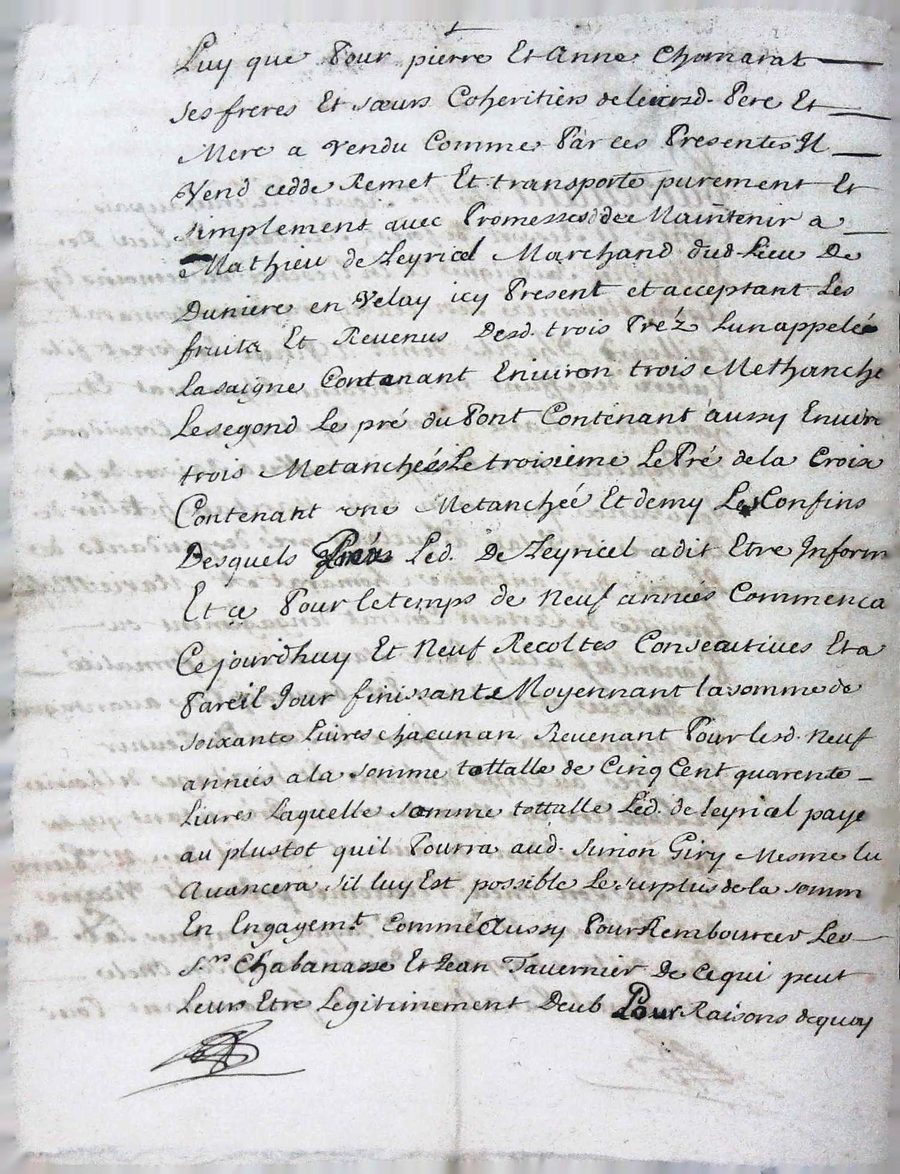 Luy que Pour pierre Et Anne Chomarat
ses freres Et sœurs Coheritiers de leursd. Pere Et
Mere a Vendu Comme Par ces Presentes Il
Vend cedde Remet Et transporte purement Et
simplement avec Promesses de Maintenir a
Mathieu de Leyricel Marchand dud. Lieu De
Duniere en Velay icy Present et acceptant Les
fruits Et Revenus Desd. trois Préz Lun appelé
La saigne Contenant Environ trois Methanché
Le segond Le pré du Pont Contenant aussy Enuir
trois Metanchées Le troisieme Le Pré de la Croix
Contenant vne Metanchéé Et demy Les Confins
Desquels Led. De Leyricel a dit Etre Inform
Et ce Pour le temps de Neuf années Commença
Ce jourdhuy Et Neuf Recoltes Consecutiues Et a
Pareil Jour finissante Moyennant la somme de
soixante Liures chacun an Revenant Pour lesd. Neuf
années a la somme tottalle de Cinq Cent quarente
Liures Laquelle somme tottalle Led. de Leyricel paye
au plustot quil Pourra aud. Simon Giry Mesme lu
Auancera s'il luy Est possible Le surplus de la somm
En Engagemt. Comme Aussy Pour Rembourcer Les
Srs. Chabanasse Et Jean Tavernier De Ce qui peut
Leurs Etre Legitimement Deub Pour Raisons de quoy